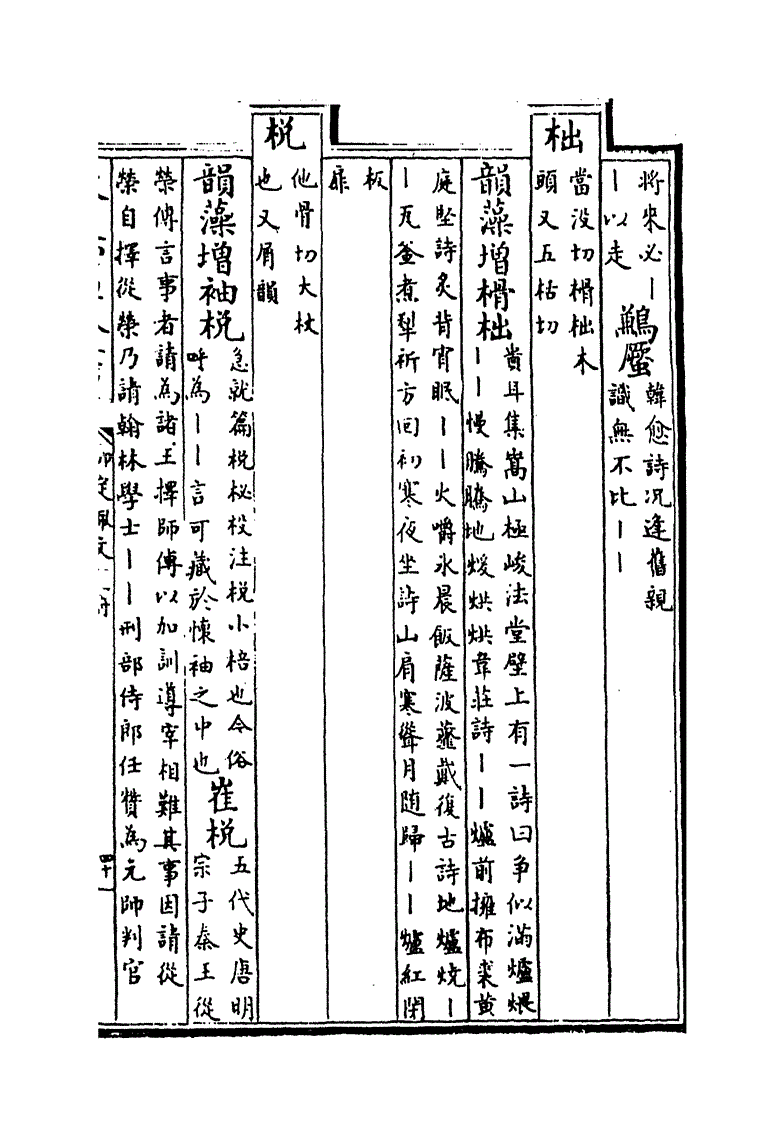 將來必｜
｜以走
鶼蟨
韓愈詩況逢舊親
識無不比｜｜
柮
當没切榾柮木
頭又五括切
韻藻增榾柮
貴耳集嵩山極峻法堂壁上有一詩曰争似滿爐煨
｜｜慢騰騰地煖烘烘韋莊詩｜｜爐前擁布裘黄
庭堅詩炙背宵眠｜｜火嚼氷晨飯薩波虀戴復古詩地爐燒｜
｜瓦釜煮犁祈方回初寒夜坐詩山肩寒聳月随歸｜｜爐紅閉
板
扉
梲
他骨切大杖
也又屑韻
韻藻增袖梲
急就篇梲柲杸注梲小棓也今俗
呼為｜｜言可藏於懷袖之中也
崔梲
五代史唐明
宗子秦王從
榮傅言事者請為諸王擇師傅以加訓導宰相難其事因請從
榮自擇從榮乃請翰林學士｜｜刑部侍郎任贊為元帥判官